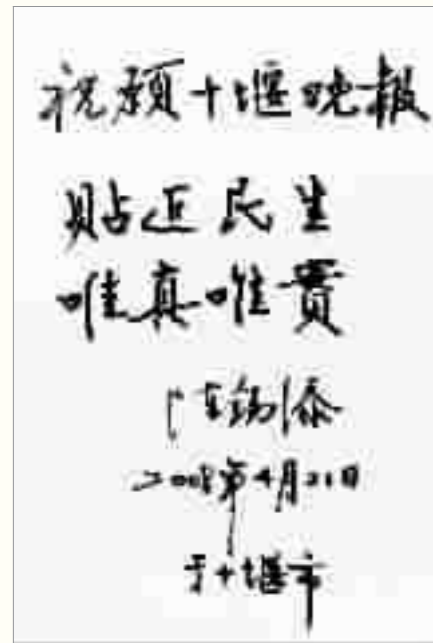 祝愿十堰晚报
贴近民生
唯真唯实
2008年4月21日
于十堰市